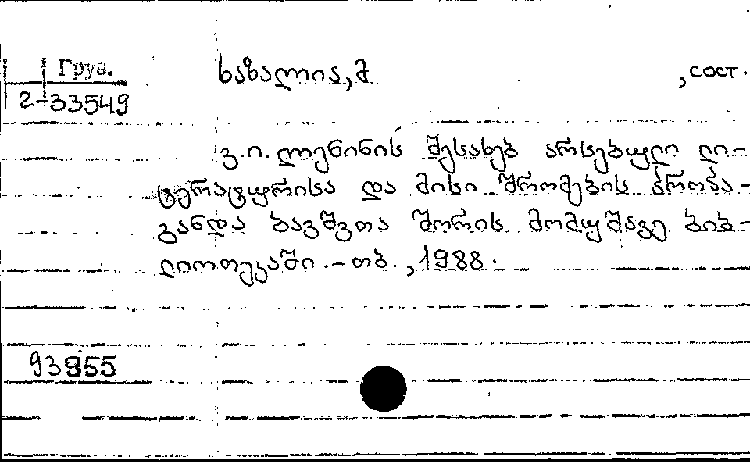 Груз.
2-33549
ხაზალია, მ. , сост.
ვ. ი. ლენინის შესახებ არსებული ლი-
ტერატურისა და მისი შრომების პროპა-
განდა ბავშვთა შორის მომუშავე ბიბ-
ლიოთეკაში. - თბ., 1988.
93855